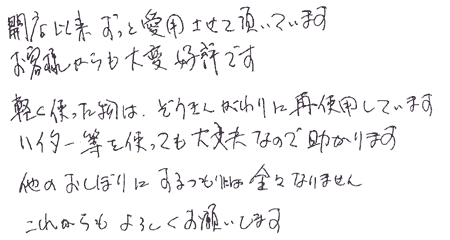 開店以来ずっと愛用させて頂いています
お客様からも大変好評です
軽く使った物は、ぞうきんがわりに再使用しています
ハイター等を使っても大丈夫なので助かります
他のおしぼりにするつもりは全々なりません
これからもよろしくお願いします